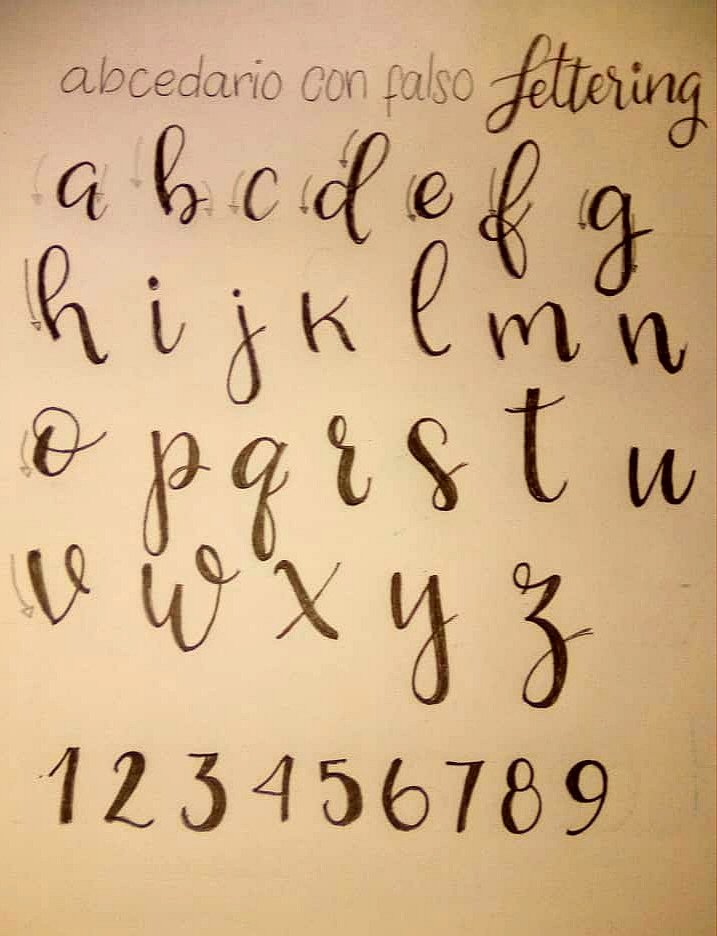 abcedario con falso lettering
a b c d e f g
h i j k l m n
o p q r s t u
v w x y z
1 2 3 4 5 6 7 8 9